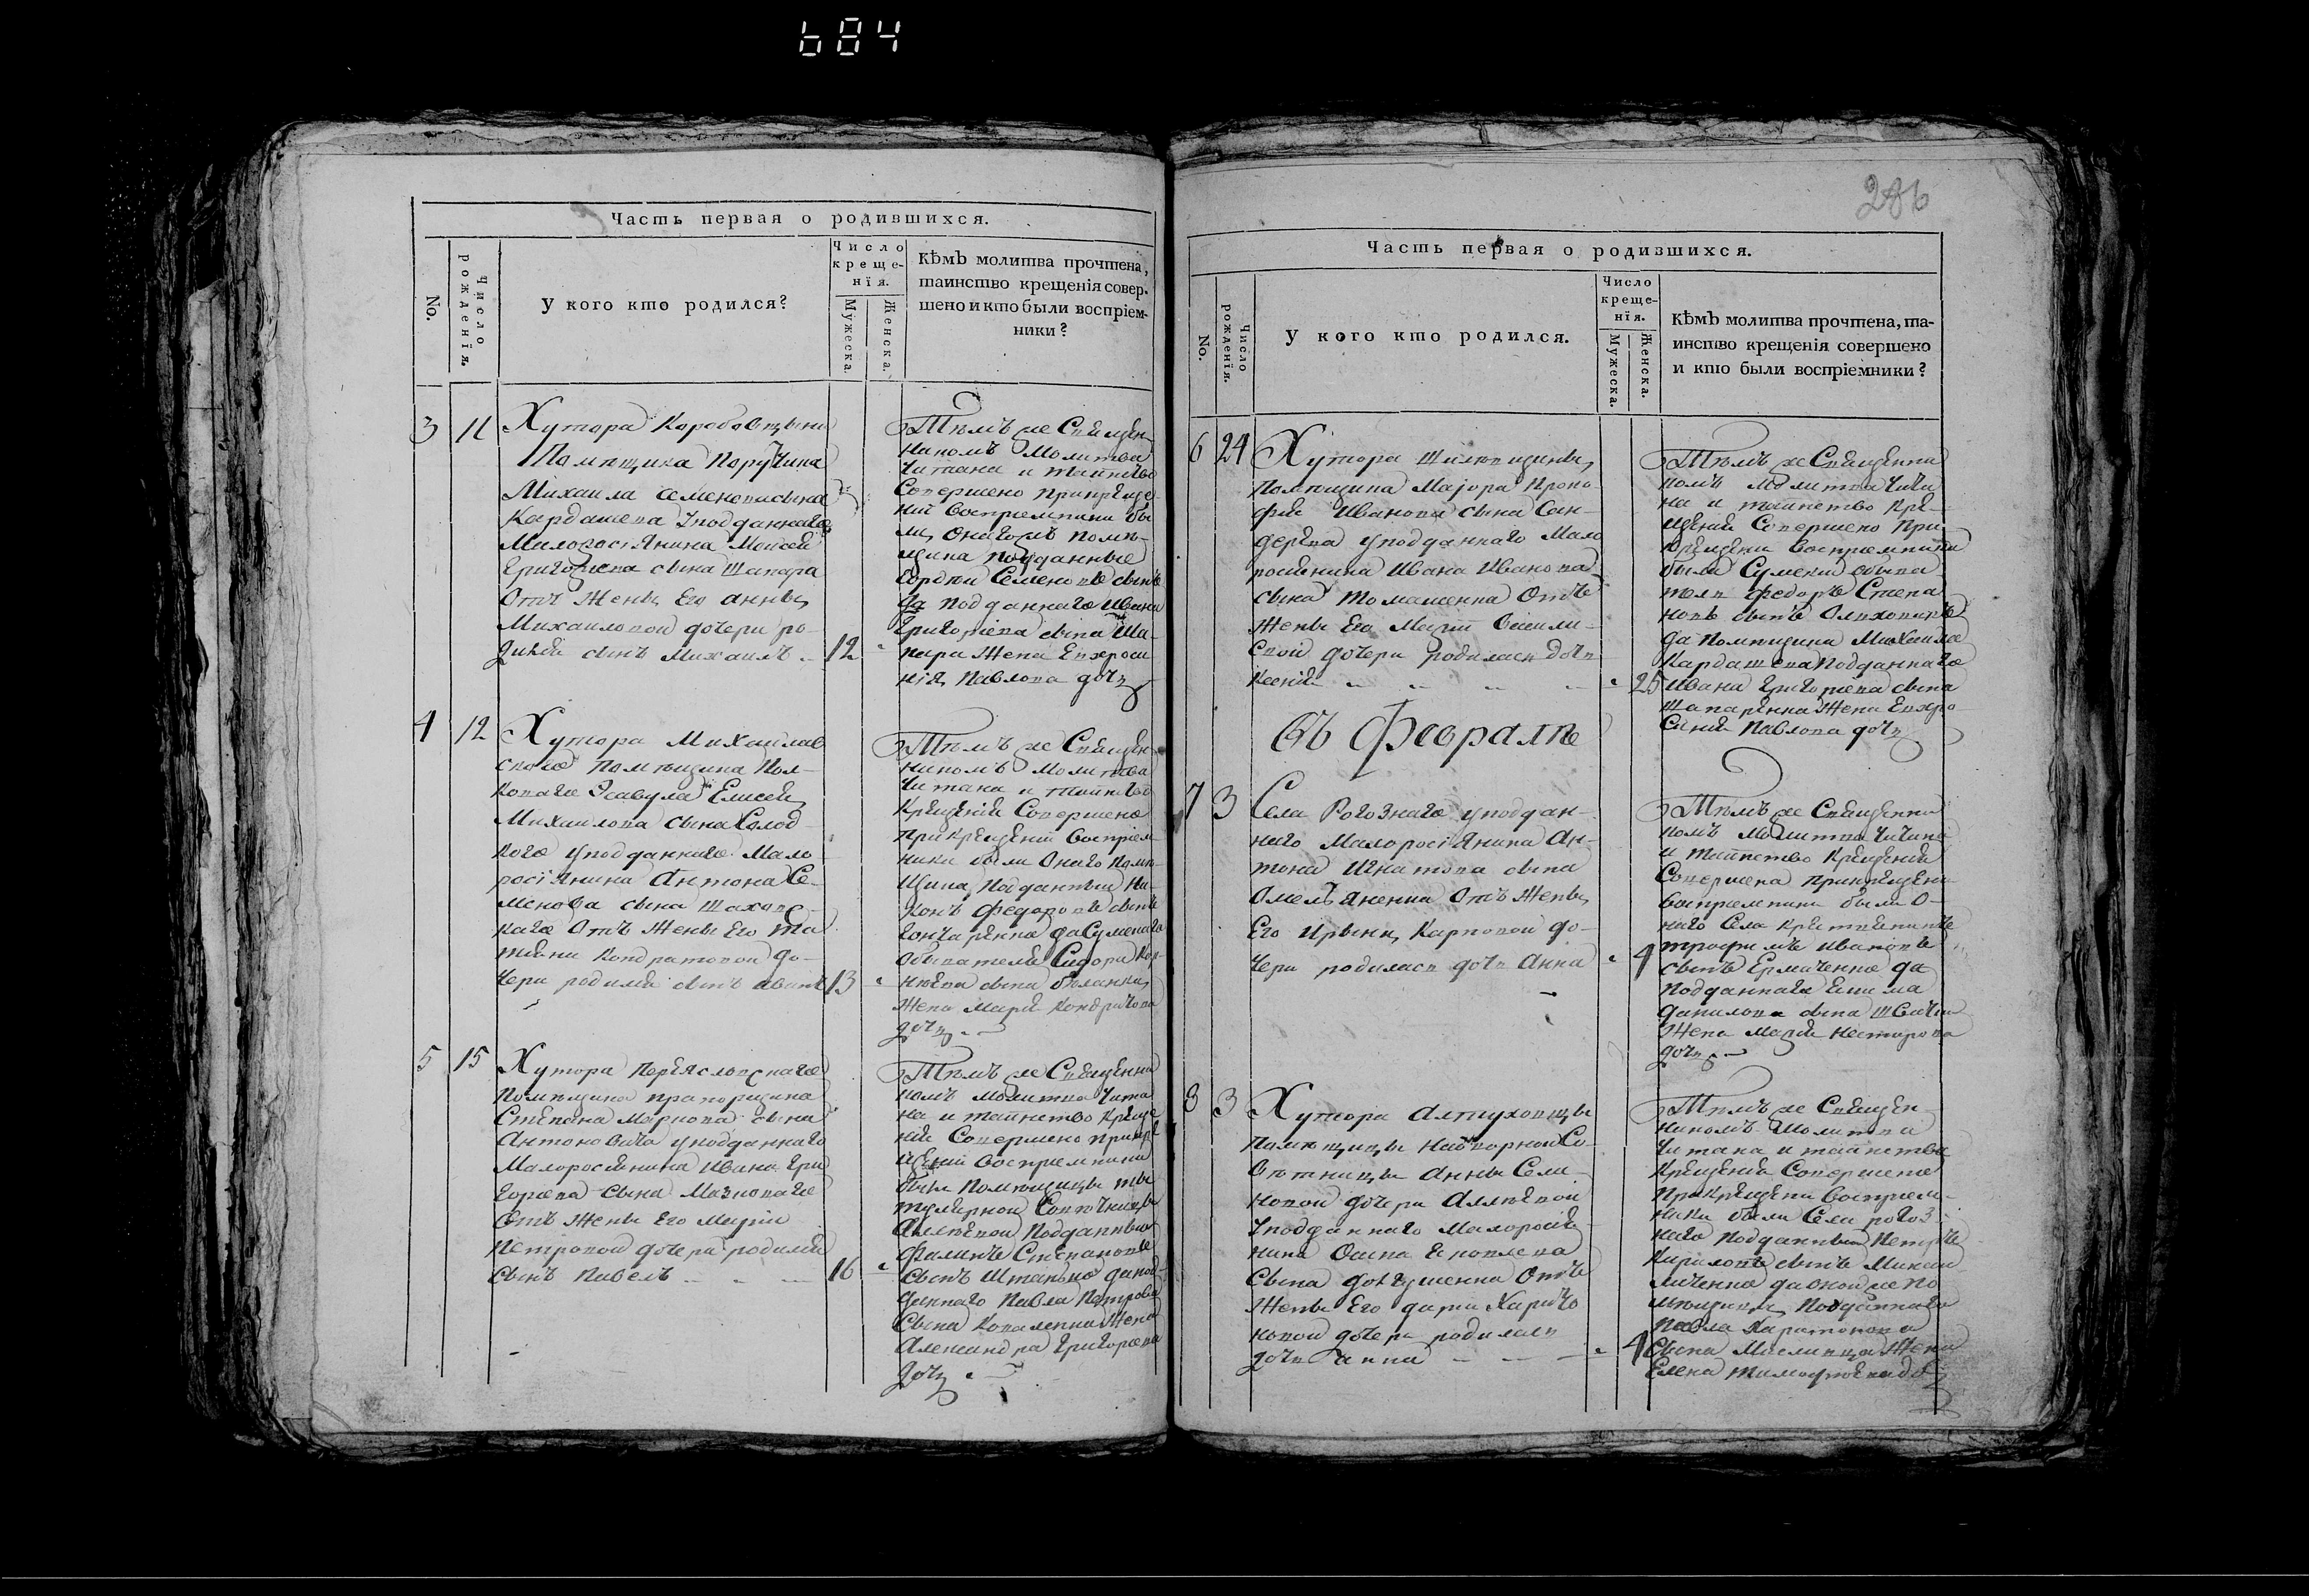 684
286
Часть первая о родившихся.
No.
Число рожденїя.
У кого кто родился?
Число
креще-
нїя.
Мужеска.
Женска.
Кѣмъ молитва прочтена,
таинство крещенія совер-
шено и кто были воспріем-
ники?
3 11
Хутора
Помѣщика Поручика
Михаила Семенова сына
Кардашева у подданнаго
Малоросіянина Моисея
Григорьева сына Шапара
Отъ жены Его Анны
Михаиловой дочери ро-
дился сынъ Михаилъ
12
Тѣмъ же Священ
никомъ Молитва
Читана и таинство
Совершено при креще
ніи Воспріемники бы
ли Онагожъ помѣ-
щика подданные
Гордѣй Семеновъ сынъ
да подданнаго Ивана
Григоріева сына Ша-
пара Жена Евхроси
нія Павлова дочь
4 12
Хутора Михаилов
скаго помѣщика Пол-
коваго Эсавула Елисея
Михаилова сына Солод
кого у подданнаго Мало
росіянина Антона Се-
менова сына Шахов-
каго Отъ Жены Его Та
тіяни Кондратовой до-
чери родился сынъ Иванъ
13
Тѣмъ же Священ-
никомъ Молитва
Читана и таинство
Крещенія Совершено
при Крещеніи Воспріем
ники были Онаго помѣ
щика Подданный Ни-
конъ Федоровъ сынъ
Гончаренко да Сумскаго
Обывателя Сидора Кор-
нѣева сына
Жена Марія Кондратова
дочь
5 15
Хутора Переясловскаго
Помѣщика прапорщика
Степана Маркова сына
Антоновича у подданнаго
Малоросіянина Ивана Гри
горьева сына Мазноваго
Отъ Жены Его Маріи
Петровой дочери родился
сынъ Павелъ
16
Тѣмъ же Священни
комъ Молитва Чита
на и таинство Креще
нія Совершено при кре
щеніи Воспріемники
были Помѣщицы ти
тулярной Совѣтницы
Алмѣевой Подданный
Филипъ Степановъ
Сынъ да под
даннаго Павла Петрова
Сына Коваленка Жена
Александра Григорьева
дочь
Часть первая о родившихся.
No.
Число рожденїя.
У кого кто родился.
Число
креще-
нїя.
Мужеска.
Женска.
Кѣмъ молитва прочтена, та-
инство крещенія совершено
и кто были воспріемники?
6 24
Хутора
Помѣщика Маіора Проко
фія Иванова сына Сан-
дерева у подданнаго Мало
росіянина Ивана Иванова
сына Томашенка Отъ
Жены Его Маріи Васили-
евой дочери родилась дочь
Ксенія
25
Тѣмъ же Священни
комъ Молитва Чита
на и таинство Кре-
щенія Совершено При
Крещеніи Воспріемники
были Сумскій обыва
тель Федоръ Степа
новъ сынъ
да Помѣщика Михаила
Кардашева Подданнаго
Ивана Григорьева сына
Шапаренка Жена Евхро
синія Павлова дочь
Въ Февралѣ
7 3
Села Рогознаго у поддан-
наго Малоросіянина Ан-
тона Игнатова сына
Омельяненка Отъ Жены
Его Ирыны Карповой до-
чери родилась дочь Анна
4
Тѣмъ же Священни
комъ Молитва Читана
и таинство Крещенія
Совершена при крещеніи
Воспріемники были О-
наго Села
Трофимъ Ивановъ
сынъ Ермаченко да
Подданнаго
Данилова сына
Жена Марія Нестерова
дочь
8 3
Хутора Алтуховщы
Помѣщицы Надворной Со-
вѣтницы Анны Семе-
новой дочери Алмѣевой
У подданнаго Малоросія-
нина Осипа
Сына Отъ
Жены Его Дарьи Харито
новой дочери родилась
дочь Анна
4
Тѣмъ же Священ-
никомъ Молитва
Читана и таинство
Крещенія Совершено
При Крещеніи Воспріем-
ники были Села Рогоз-
наго Подданный Петръ
Кириловъ сынъ Михаи
личенко да оной же По
мѣщицы Подданнаго
Павла Харитонова
Сына Жена
Елена Тимофѣева до